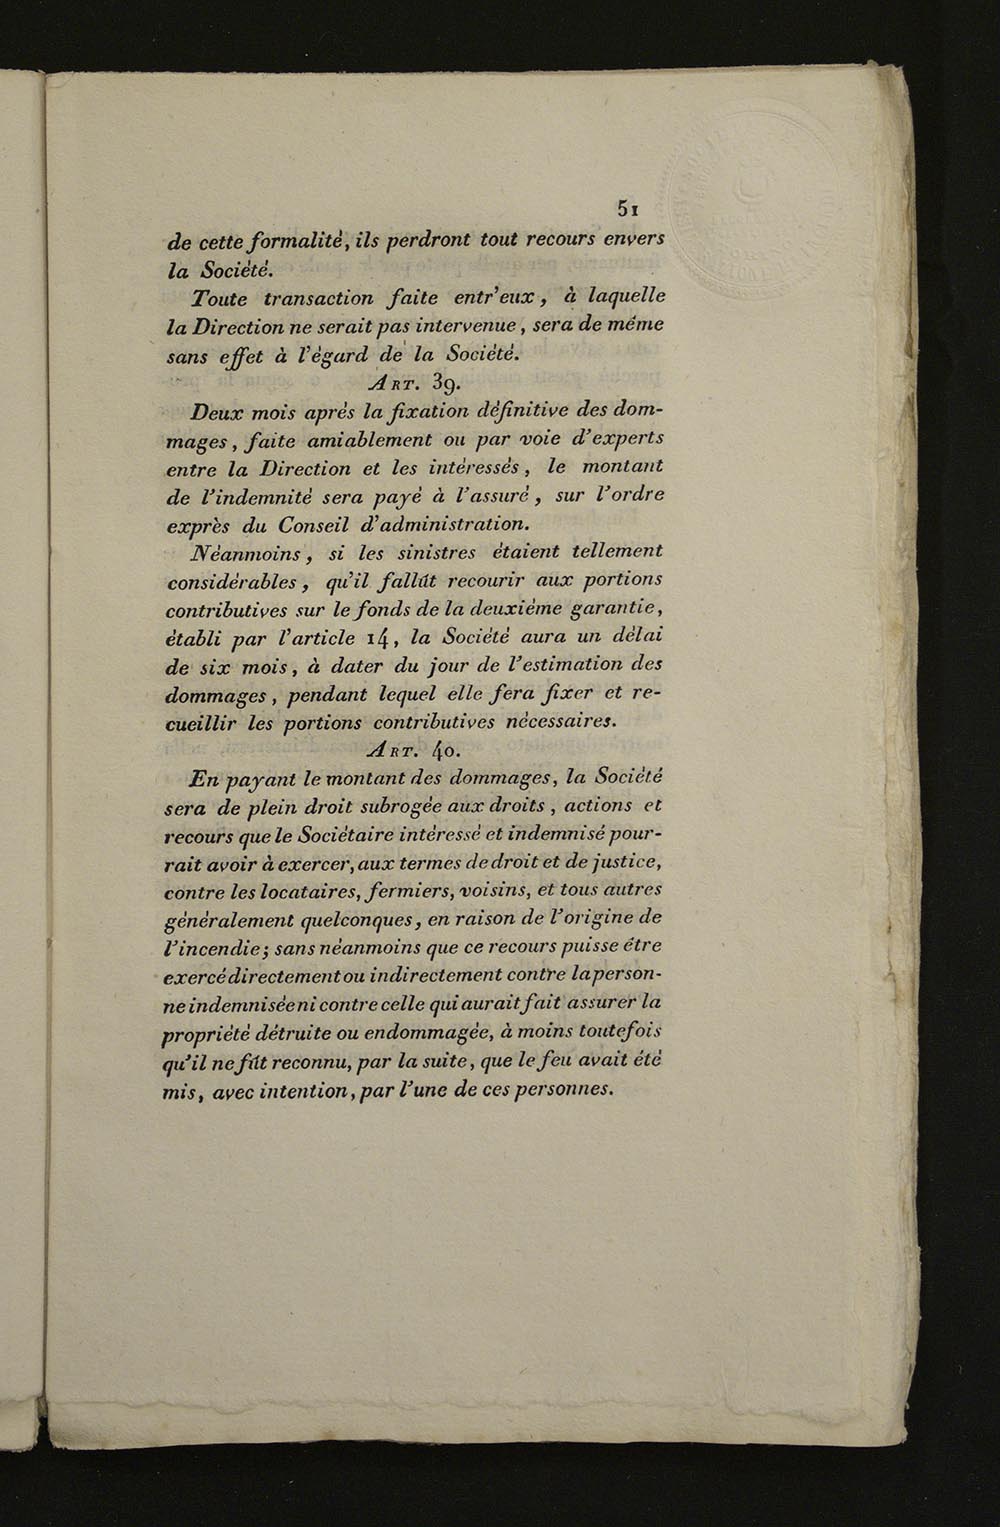 51
de cette formalité, ils perdront tout recours envers
la Société.
Toute transaction faite entr'eux, à laquelle
la Direction ne serait pas intervenue, sera de même
sans effet à l'égard de la Société.
ART. 39.
Deux mois après la fixation définitive des dom-
mages, faite amiablement ou par voie d'experts
entre la Direction et les intéressés, le montant
de l'indemnité sera payé à l'assuré, sur l'ordre
exprès du Conseil d'administration.
Néanmoins, si les sinistres étaient tellement
considérables, qu'il fallût recourir aux portions
contributives sur le fonds de la deuxième garantie,
établi par l'article 14, la Société aura un délai
de six mois, à dater du jour de l'estimation des
dommages, pendant lequel elle fera fixer et re-
cueillir les portions contributives nécessaires.
ART. 40.
En payant le montant des dommages, la Société
sera de plein droit subrogée aux droits, actions et
recours que le Sociétaire intéressé et indemnisé pour-
rait avoir à exercer, aux termes de droit et de justice,
contre les locataires, fermiers, voisins, et tous autres
généralement quelconques, en raison de l'origine de
l'incendie; sans néanmoins que ce recours puisse être
exercé directement ou indirectement contre la person-
ne indemnisée ni contre celle qui aurait fait assurer la
propriété détruite ou endommagée, à moins toutefois
qu'il ne fût reconnu, par la suite, que le feu avait été
mis, avec intention, par l'une de ces personnes.